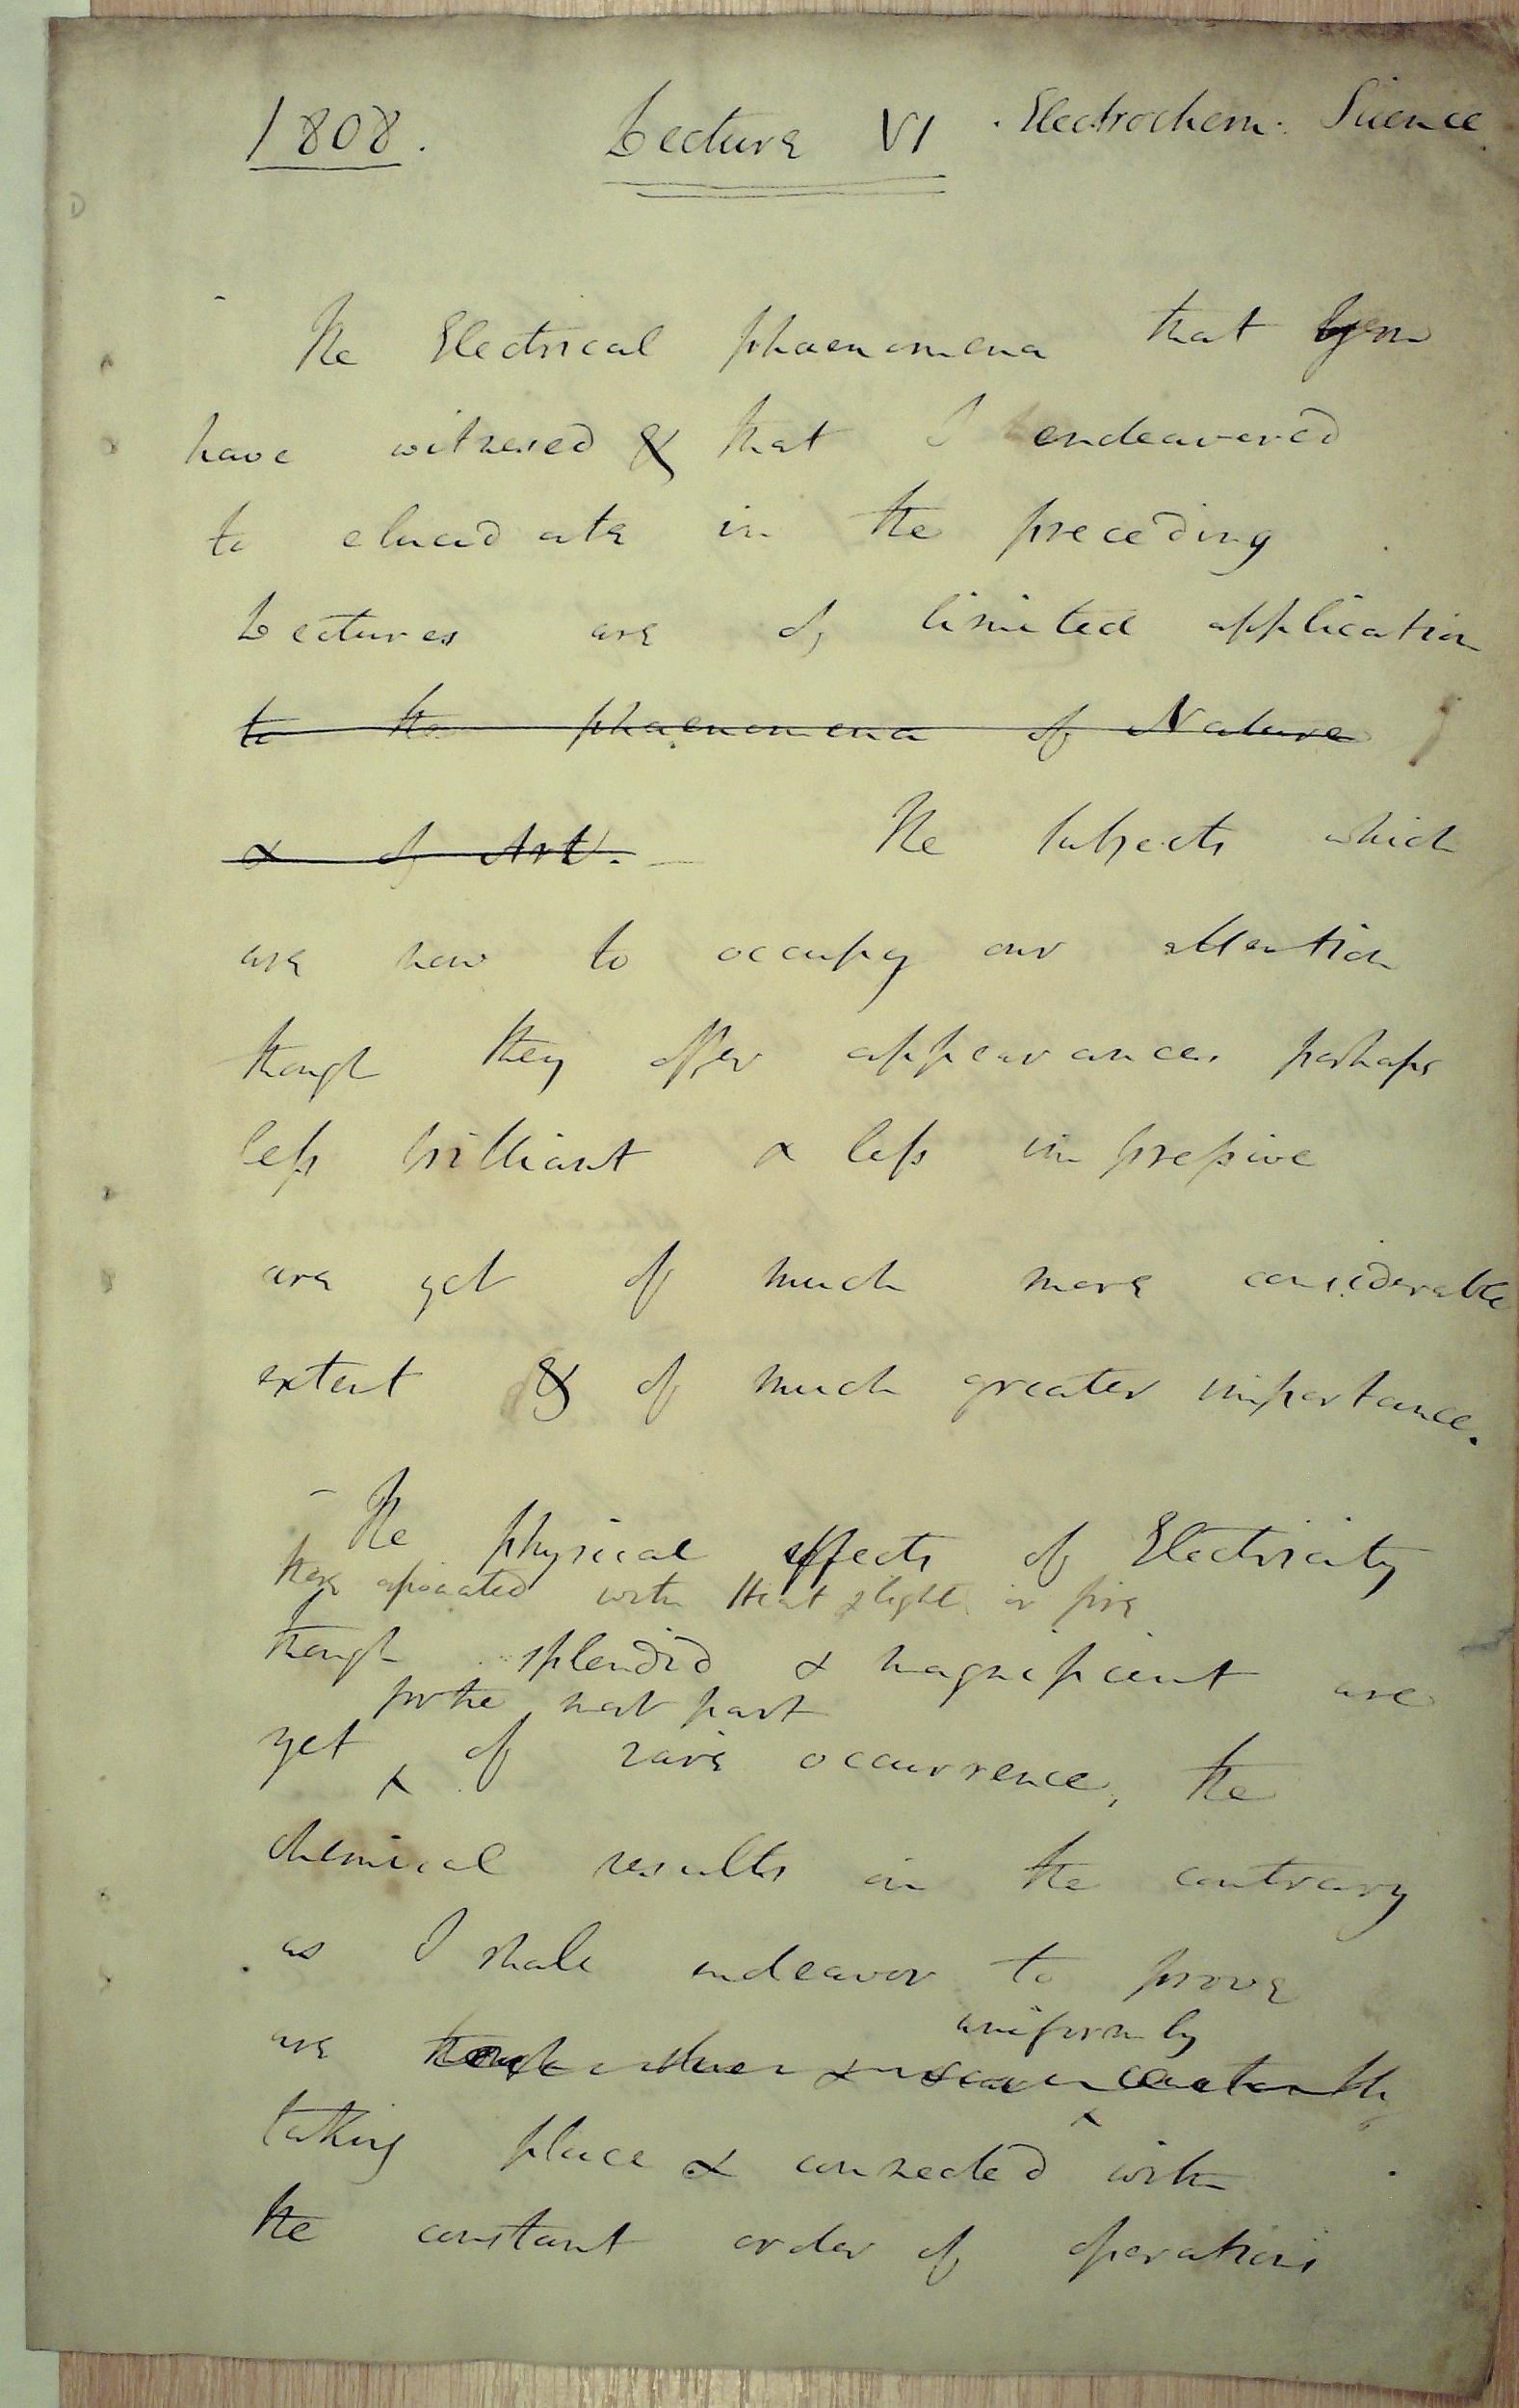 1808. Lecture VI . Electrochem. Science
The Electrical phaenomena that you
have witnessed & that I endeavored
to elucidate in the preceding
Lectures are of limited application
to the phaenomena of Nature
& of Art. — The subjects which
are now to occupy our attention
though they offer appearances perhaps
less brilliant & less impressive
are yet of much more considerable
extent & of much greater importance.
- The physical effects of Electricity
those associated with Heat & light or fire
though splendid & magnificent are
for the most part
yet of rare occurrence, the
chemical results on the contrary
as I shall endeavor to prove
uniformly
are constantly
taking place & connected with
the constant order of operations